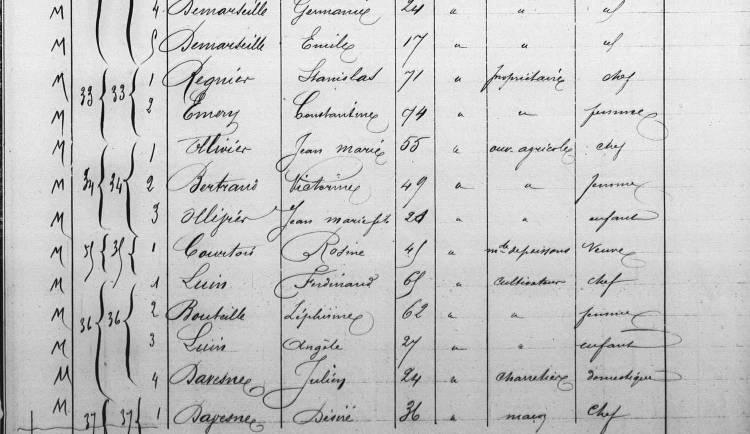 M 4 Demarseille Germanie 24 " " "
M 5 Demarseille Emile 17 " " "
M 33 33 1 Regnier Stanislas 71 " propriétaire chef
M 2 Emery Constantine 74 " " femme
M 1 Ollivier Jean marie 55 " ouv. agricole chef
M 34 34 2 Bertrand Victorine 49 " " femme
M 3 Ollivier Jean marie fils 21 " " enfant
M 35 35 1 Courtois Rosine 45 " mde de poissons Veuve
M 1 Luin Ferdinand 65 " cultivateur chef
M 36 36 2 Bouteille Zéphirine 62 " " femme
M 3 Luin Angèle 27 " " enfant
M 4 Davesne Julien 24 " charretier domestique
M 37 37 1 Davesne Désiré 36 " maçon chef